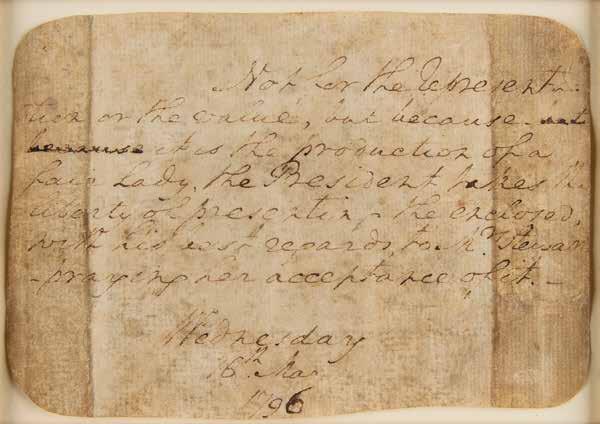 Not for the representa-
tion or the value, but because
it is the production of a
fair Lady, the President takes the
liberty of presenting the enclosed,
with his best regards, to Mrs. Stewart
praying her acceptance of it. –
Wednesday
16th Mar
1796